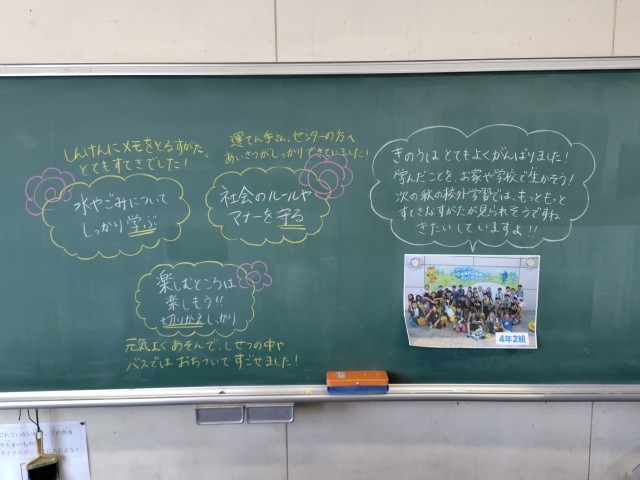 しんけんにメモをとるすがた、
とてもすてきでした！
水やごみについて
しっかり学ぶ
運てん手さん、センターの方へ
あいさつがしっかりできていました！
社会のルールや
マナーを守る
楽しむところは
楽しもう！！
切りかえしっかり
元気よくあそんで、しせつの中や
バスではおちついてすごせました！
きのうはとてもよくがんばりました！
学んだことを、お家や学校で生かそう！
次の秋の校外学習では、もっともっと
すてきなすがたが見られそうですね
きたいしていますよ！！
4年2組